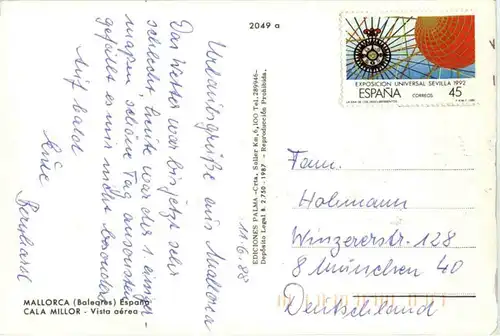 2049 a
Urlaubsgrüße aus Mallorca
11.6.88
Das Wetter war bis jetzt sehr
schlecht, heute war der 1. einiger-
maßen schöne Tag ansonsten
gefällt es mir nicht besonders
Auf bald
Eure
Bernhard
MALLORCA (Baleares) España
CALA MILLOR - Vista aérea
EDICIONES PALMA-Crta. Soller Km, 6,100 Tel. 289946-
Depósito Legal B. 2.750 - 1987 - Reproducción Prohibida.
EXPOSICION UNIVERSAL SEVILLA 1992
ESPAÑA CORREOS 45
Fam.
Hohmann
Winzererstr. 128
8 München 40
Deutschland